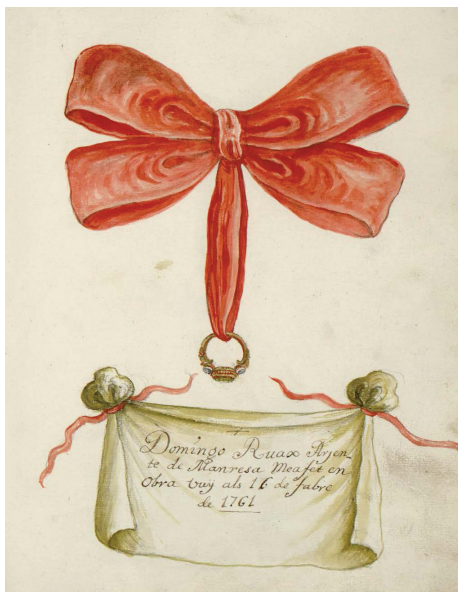 Domingo Ruax Arjen-
te de Manresa Meafet en
Obra vuy als 16 de fabre
de 1761